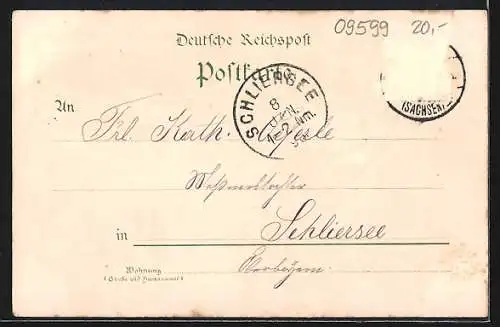 09599 20,-
Deutsche Reichspost
Postkarte
SCHLIERSEE
8
JAN.
1-2 Nm.
(SACHSEN)
An
Frl. Kath.
in Schliersee
Oberbayern
Wohnung
(Straße und Hausnummer)